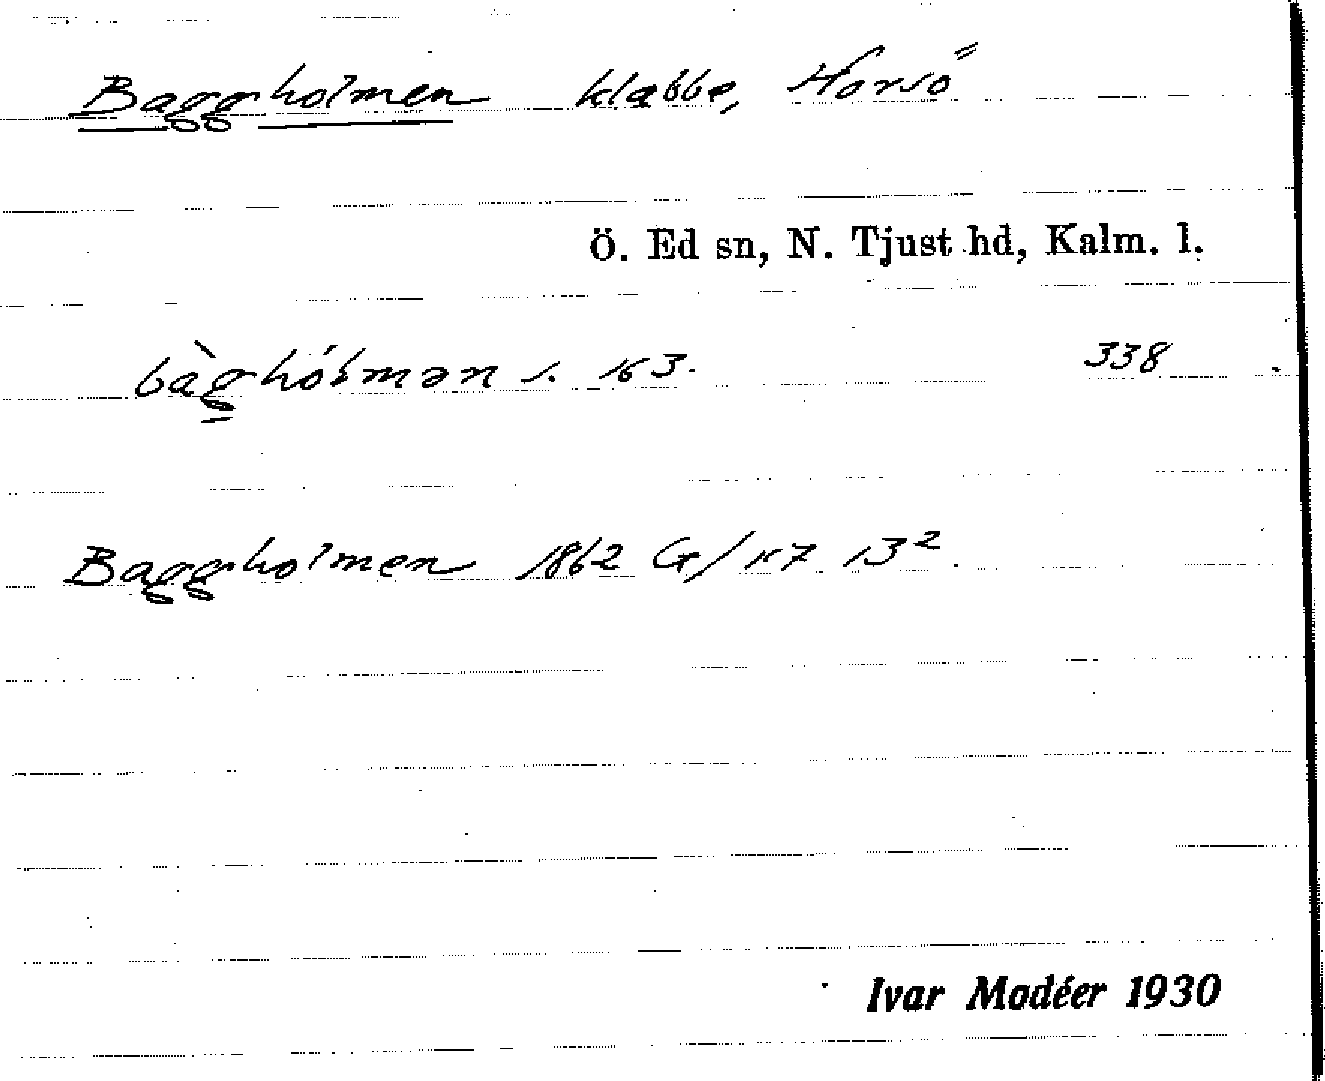 Baggholmen klabbe, Horsö
Ö. Ed sn, N. Tjust hd, Kalm. l.
bàghóɫmən s. 163. 338
Baggholmen 1862 G/K7 13²
Ivar Modéer 1930